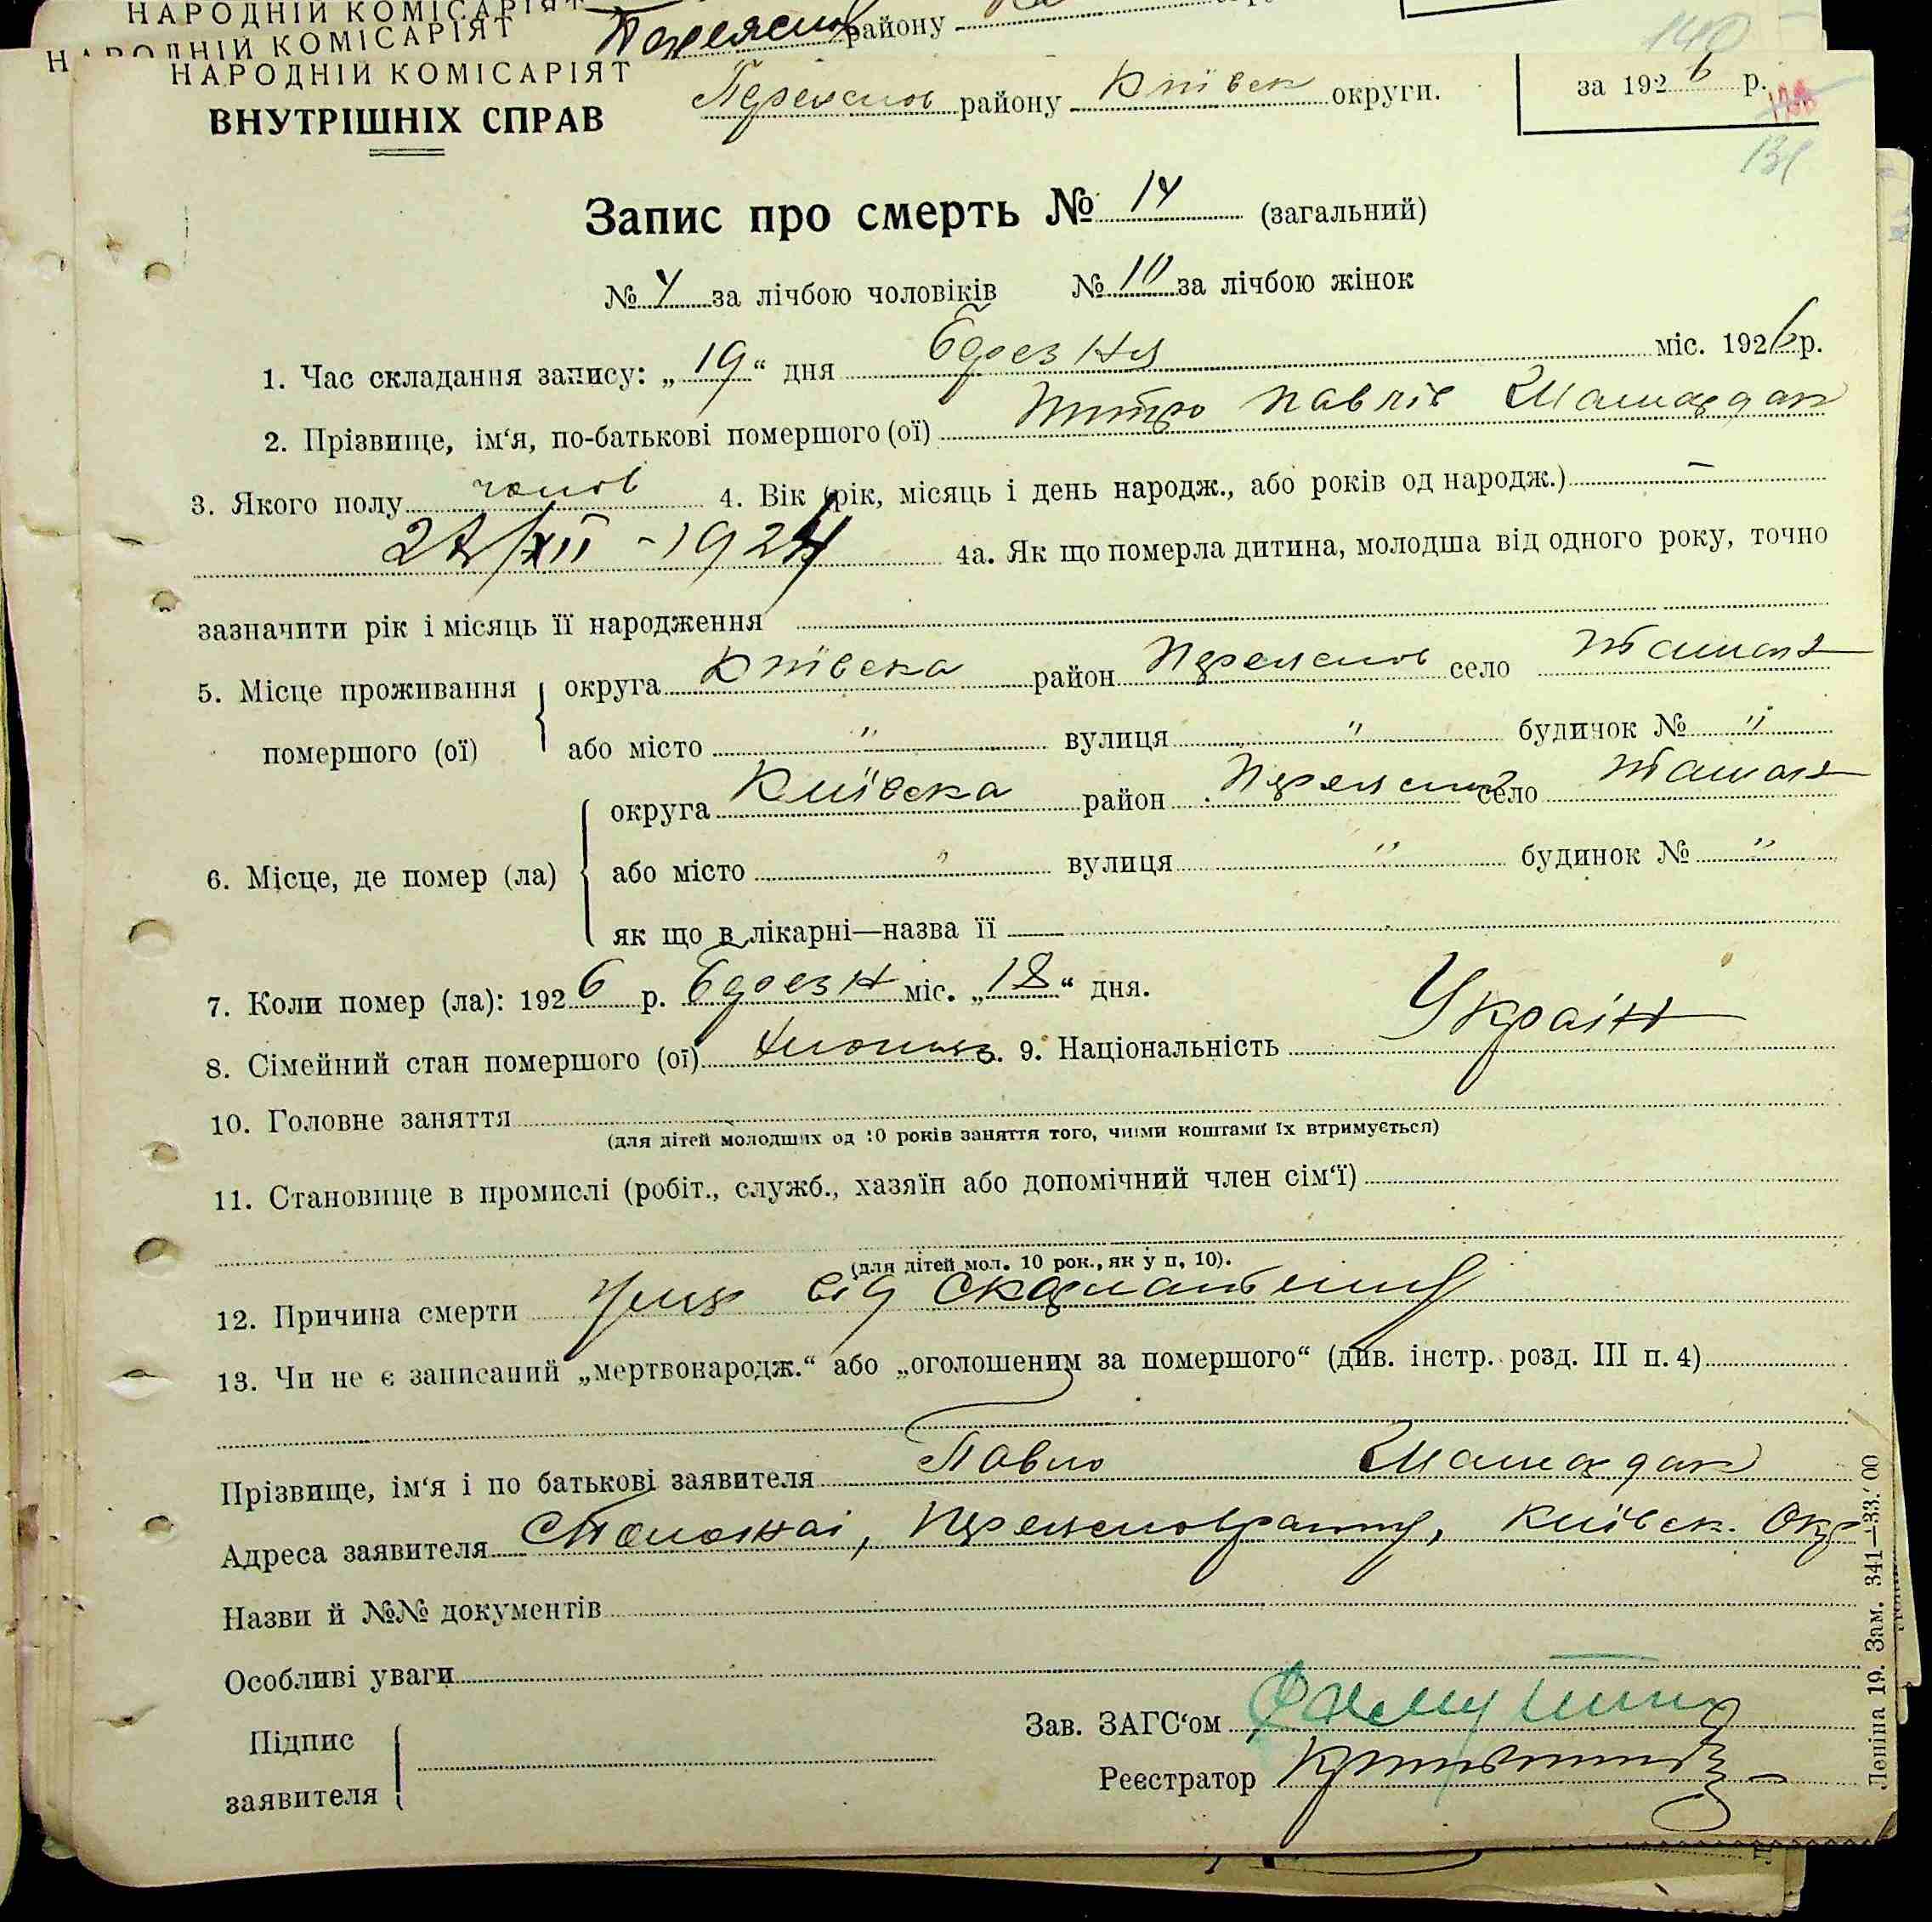 НАРОДНІЙ КОМІСАРІЯТ
НАРОДНІЙ КОМІСАРІЯТ
Переяслов району
140
НАРОДНІЙ КОМІСАРІЯТ
ВНУТРІШНІХ СПРАВ
Переяслов району Київськ округи.
за 1926 р.
131
Запис про смерть № 14 (загальний)
№ 4 за лічбою чоловіків № 10 за лічбою жінок
1. Час складання запису: „19“ дня березня міс. 1926 р.
2. Прізвище, ім‘я, по-батькові помершого (ої) Митро Павлів Шамардак
3. Якого полу чолов 4. Вік (рік, місяць і день народж., або років од народж.) —
/XII - 1924 4а. Як що померла дитина, молодша від одного року, точно
зазначити рік і місяць її народження
5. Місце проживання помершого (ої) округа Київська район Переяслов село Ташань
або місто " вулиця " будинок № "
6. Місце, де помер (ла) округа Київська район Переяслов село Ташань
або місто " вулиця " будинок № "
як що в лікарні—назва її —
7. Коли помер (ла): 1926 р. березн міс. „18“ дня.
8. Сімейний стан помершого (ої) 9. Національність Україн
10. Головне заняття
(для дітей молодших од 10 років заняття того, чиїми коштами їх втримується)
11. Становище в промислі (робіт., служб., хазяїн або допомічний член сім‘ї)
(для дітей мол. 10 рок., як у п. 10).
12. Причина смерти умер від скарлатини
13. Чи не є записаний „мертвонародж.“ або „оголошеним за помершого“ (див. інстр. розд. III п. 4)
Прізвище, ім‘я і по батькові заявителя Павло Шамардак
Адреса заявителя Київськ. Окр
Назви й №№ документів
Особливі уваги
Підпис заявителя
Зав. ЗАГС‘ом
Реєстратор
Леніна 19. Зам. 341—33.000